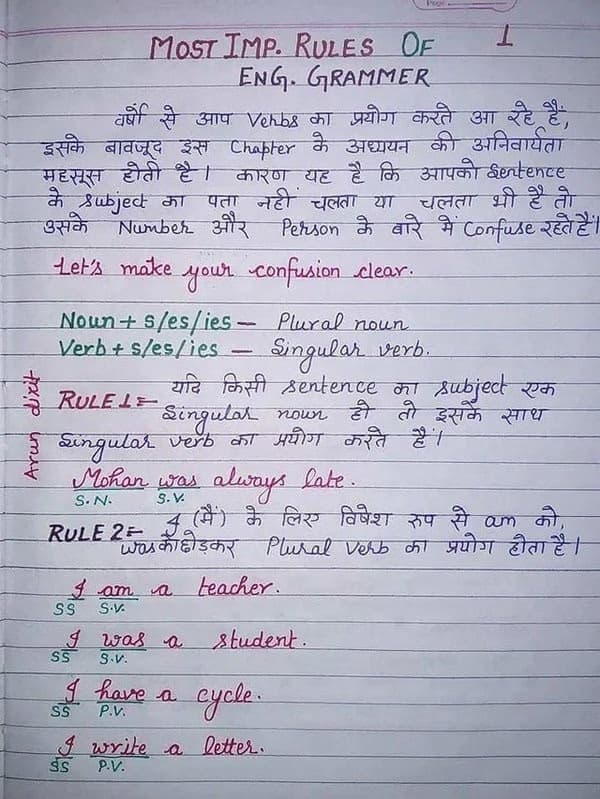 Page
MOST IMP. RULES OF 1
ENG. GRAMMER
वर्षो से आप Verbs का प्रयोग करते आ रहे हैं,
इसके बावजूद इस Chapter के अध्ययन की अनिवार्यता
महसूस होती है। कारण यह है कि आपको Sentence
के Subject का पता नहीं चलता या चलता भी है तो
उसके Number और Person के बारे में Confuse रहते हैं।
Let's make your confusion clear.
Noun + s/es/ies — Plural noun
Verb + s/es/ies — Singular verb.
RULE 1 = यदि किसी sentence का subject एक
Singular noun हो तो इसके साथ
Singular verb का प्रयोग करते हैं।
Arun dixit
Mohan was always late.
S.N. S.V.
RULE 2 = I (मैं) के लिए विषेश रुप से am को,
was को छोड़कर Plural verb का प्रयोग होता है।
I am a teacher.
SS S.V.
I was a student.
SS S.V.
I have a cycle.
SS P.V.
I write a letter.
SS P.V.